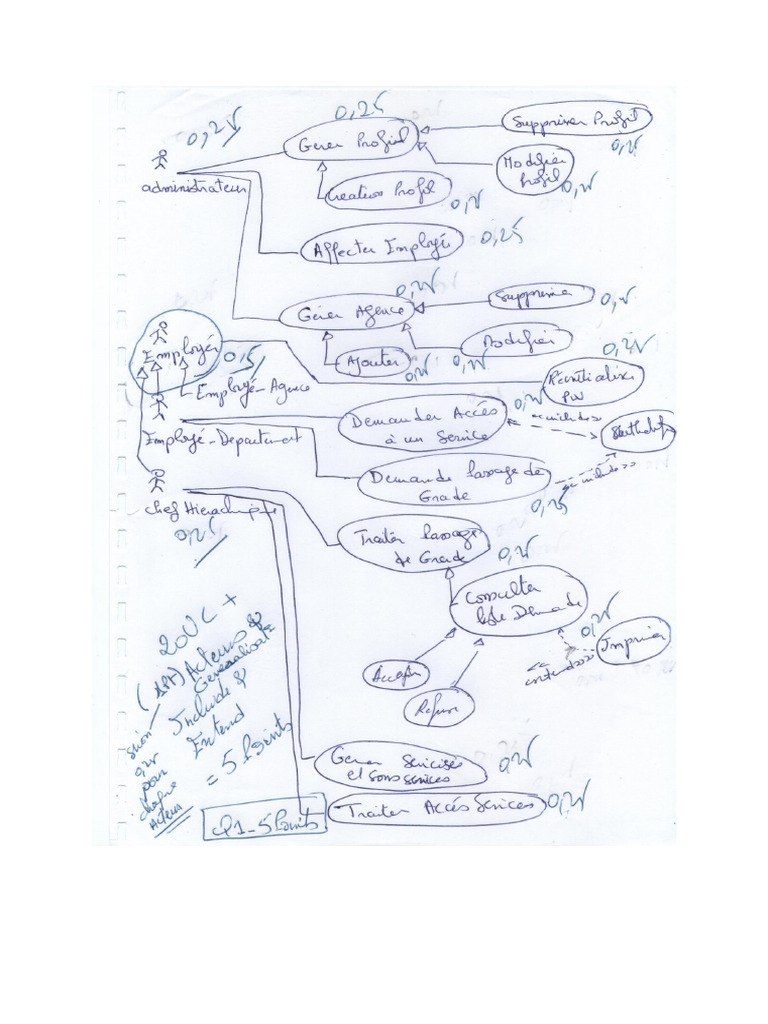 0,25
0,25
Gerer Profil
Supprimer Profil
0,25
administrateur
Modifier
Profil
0,25
Creation Profil
0,25
Affecter Employé
0,25
0,25
Gerer Agence
Supprimer
0,25
Modifier
0,25
Ajouter
0,25
0,25
Employé
0,5
Employé-Agence
PW
0,25
Demander Accès
à un Service
<<include>>
Employé-Departement
Demande Passage de
Grade
<<include>>
0,25
Chef Hierachique
0,25
Traiter Passage
de Grade
0,25
Consulter
liste Demande
0,25
Imprimer
Accepter
Refuser
20 UC +
Acteurs &
Generalisation
Include &
Extend
= 5 Points
sinon
0,25
pour
chaque
Acteur
Gerer Services
et sous services
0,25
Traiter Accès Services
0,25
Q1-5 Points